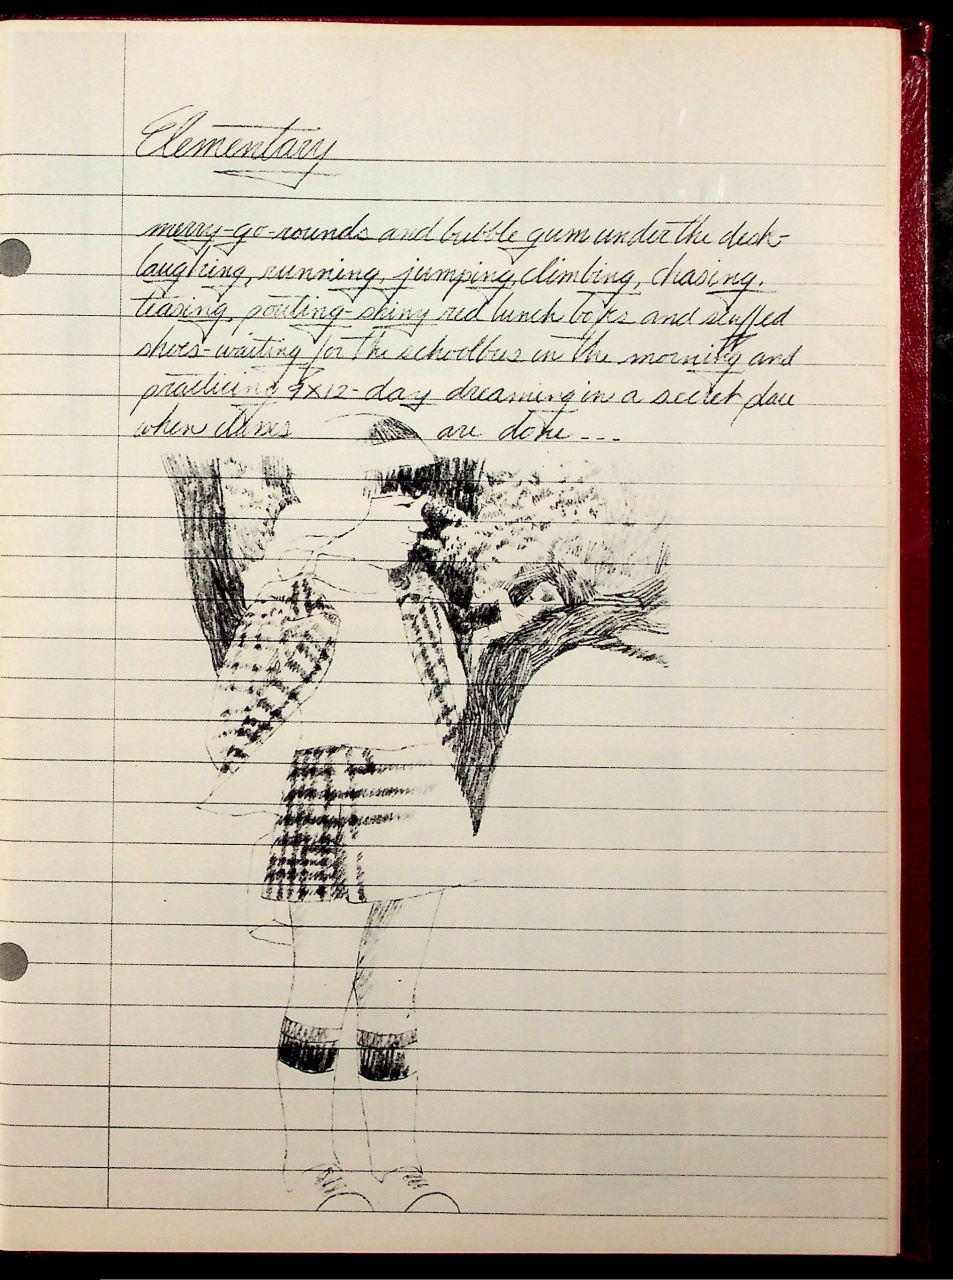 Elementary
merry-go-rounds and bubble gum under the desk-
laughing, running, jumping, climbing, chasing,
teasing, pouting-shiny red lunch boxes and scuffed
shoes-waiting for the schoolbus in the morning and
practicing 9x12-day dreaming in a secret place
when classes are done ---